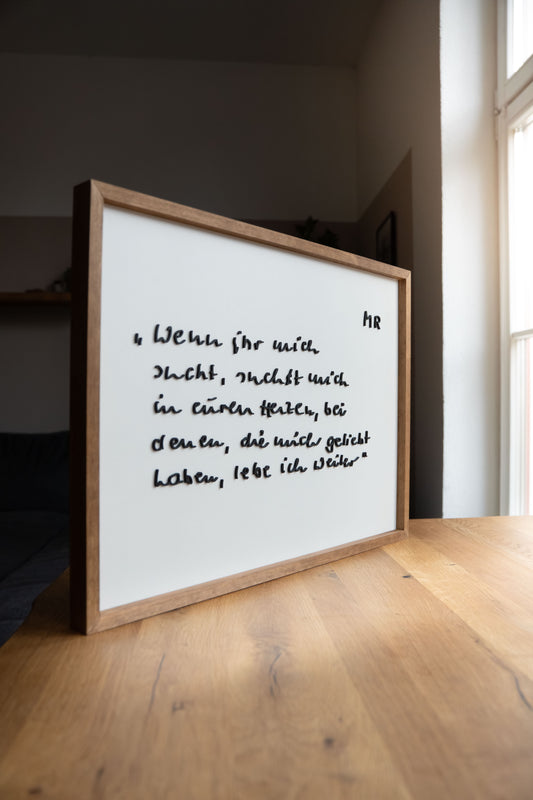 MR
„Wenn ihr mich
sucht, suchst mich
in euren Herzen, bei
denen, die mich geliebt
haben, lebe ich weiter"